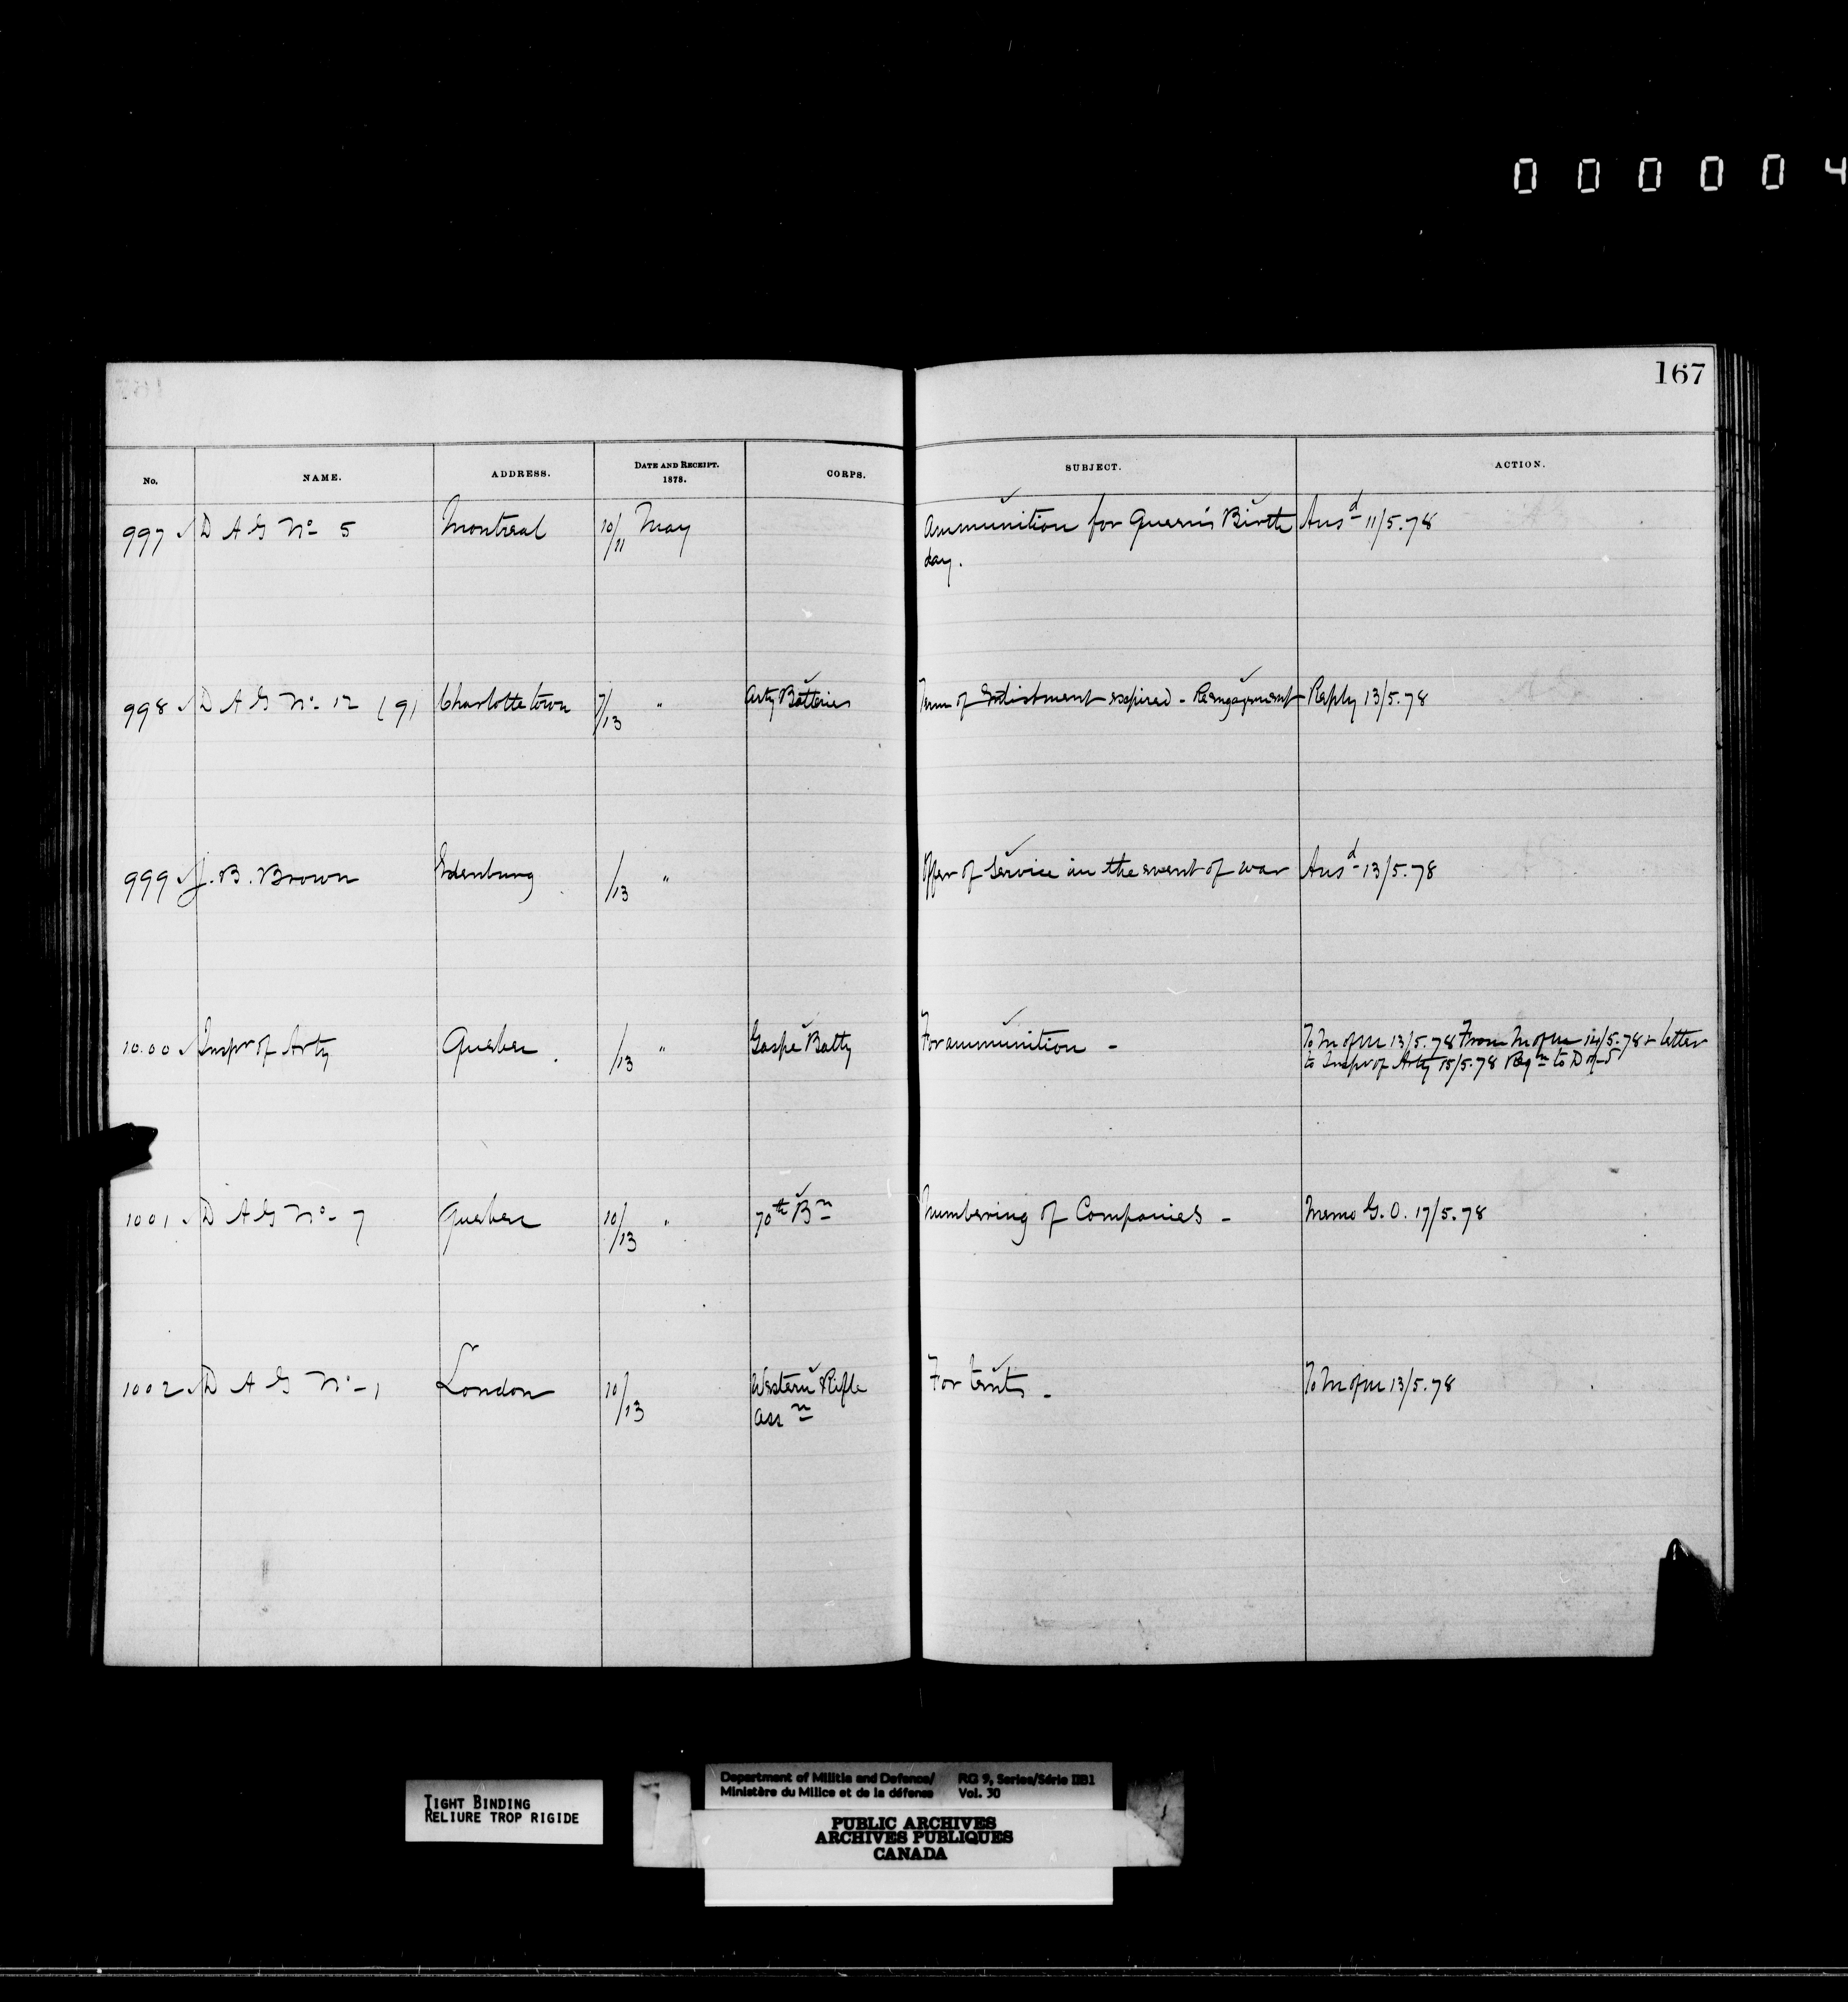 0 0 0 0 0 4
167
No. NAME. ADDRESS. DATE AND RECEIPT. 1878. CORPS. SUBJECT. ACTION.
997 D A G No 5 Montreal 10/11 May Ammunition for Queen's Birth Ansd 11/5.78
day.
998 D A G No 12 (9) Charlottetown 7/13 " Arty Batteries Term of Enlistment expired - Reengagement Reply 13/5.78
999 J. B. Brown Edenburg /13 " Offer of Service in the event of war Ansd 13/5.78
10.00 Inspr of Arty Quebec /13 " Gaspe Batty For ammunition - To M of M 13/5.78 From M of M 14/5.78 & letter
to Inspr of Arty 15/5.78 Reqn to D of S
1001 D A G No 7 Quebec 10/13 " 70th Bn Numbering of Companies - Memo G.O. 17/5.78
1002 D A G No 1 London 10/13 Western Rifle For tents - To M of M 13/5.78
Assn
TIGHT BINDING
RELIURE TROP RIGIDE
Department of Militia and Defence/ RG 9, Series/Série IIB1
Ministère du Milice et de la défense Vol. 30
PUBLIC ARCHIVES
ARCHIVES PUBLIQUES
CANADA